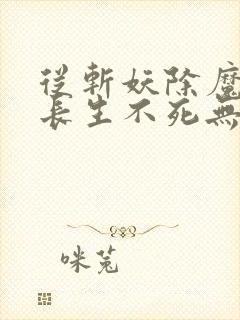 從斬妖除魔
長生不死無
咪菟